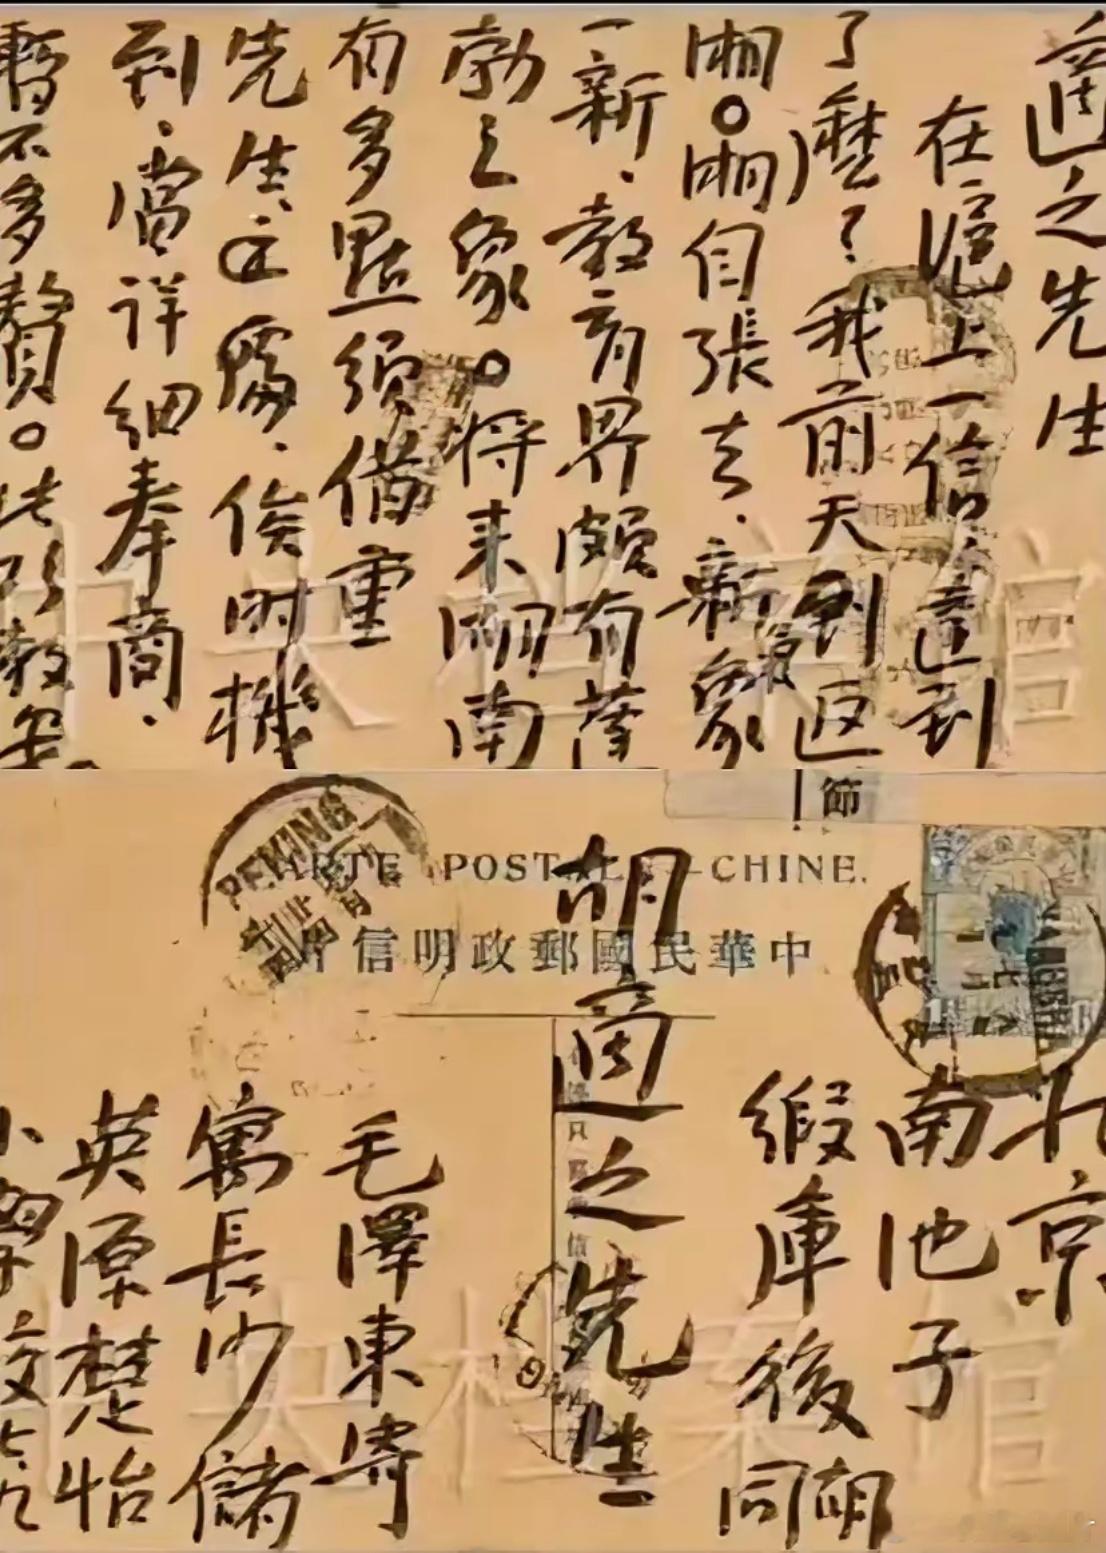 適之先生
在滬上一信達到
了麼?我前天到返
湘。湘自張去,新氣象
一新,教育界頗有蓬
勃之象。將來湖南
有多點須借重
先生之處,俟時機
到,當詳細奉商,
暫不多贅。此頌教安
中央档案馆
節
PEKING
CARTE POSTALE—CHINE.
中華民國郵政明信片
北京
南池子
緞庫後胡同
胡適之先生
毛澤東寄
寓長沙儲
英源楚怡
小學校 七,九
中央档案馆